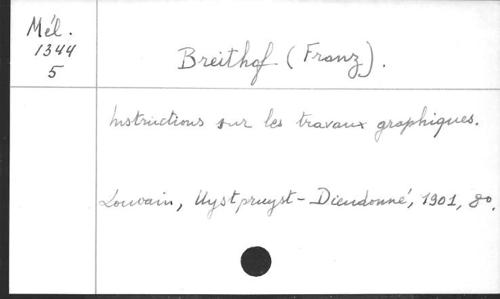 Mél.
1344
5
Breithof (Franz).
Instructions sur les travaux graphiques.
Louvain, Uystpruyst-Dieudonné, 1901, 8o.